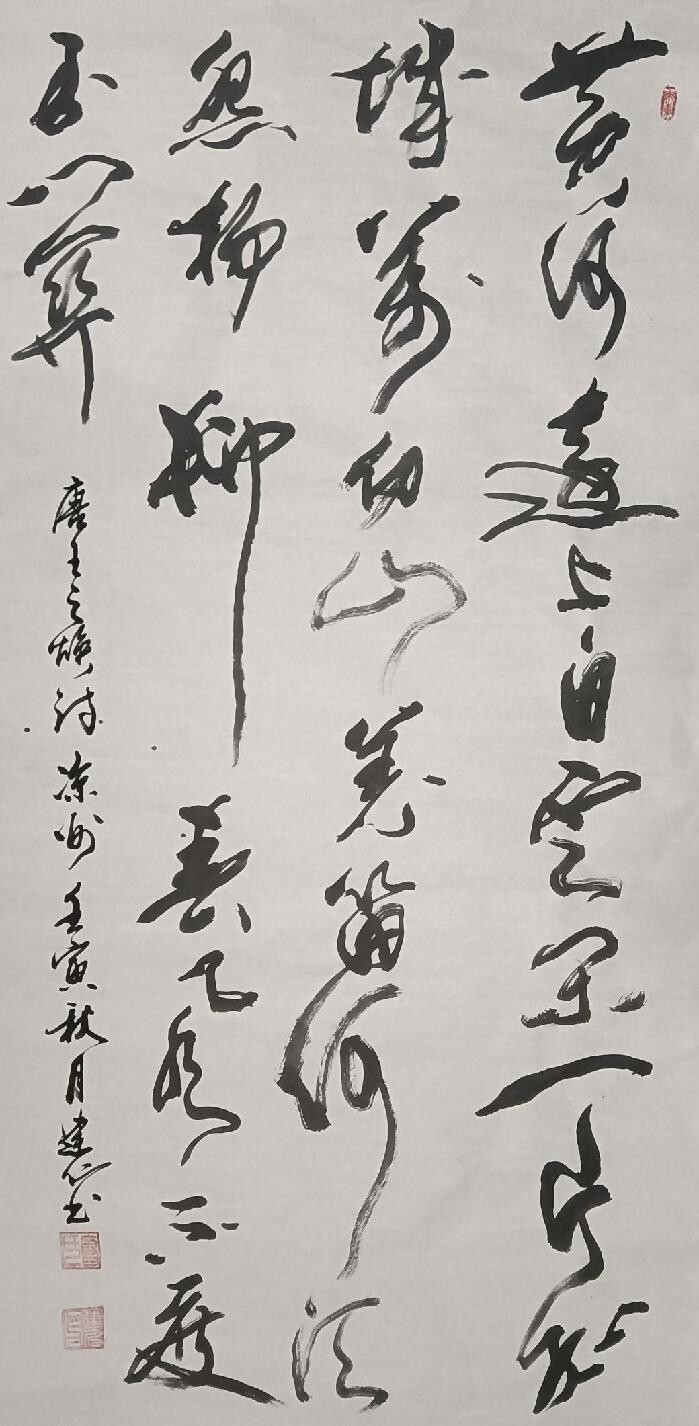 黄河遠上白雲间一片孤
城萬仞山羌笛何须
怨楊柳春风不度
玉门關
唐王之焕诗凉州壬寅秋月建仁书